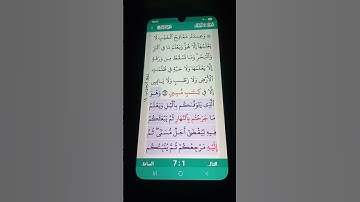 وَعِندَهُۥ مَفَاتِحُ ٱلْغَيْبِ لَا
يَعْلَمُهَآ إِلَّا هُوَ ۚ وَيَعْلَمُ مَا فِى ٱلْبَرِّ
وَٱلْبَحْرِ ۚ وَمَا تَسْقُطُ مِن وَرَقَةٍ
إِلَّا يَعْلَمُهَا وَلَا حَبَّةٍ فِى ظُلُمَـٰتِ
ٱلْأَرْضِ وَلَا رَطْبٍ وَلَا يَابِسٍ
إِلَّا فِى كِتَـٰبٍ مُّبِينٍ وَهُوَ
ٱلَّذِى يَتَوَفَّىٰكُم بِٱلَّيْلِ وَيَعْلَمُ
مَا جَرَحْتُم بِٱلنَّهَارِ ثُمَّ يَبْعَثُكُمْ
فِيهِ لِيُقْضَىٰٓ أَجَلٌ مُّسَمًّى ۖ ثُمَّ
إِلَيْهِ مَرْجِعُكُمْ ثُمَّ يُنَبِّئُكُم
7:1